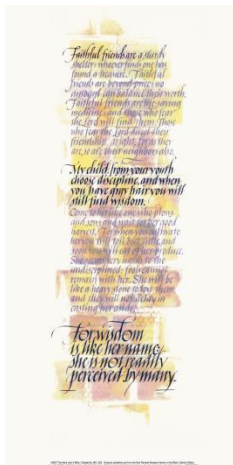 Faithful friends are a sturdy
shelter: whoever finds one has
found a treasure. Faithful
friends are beyond price; no
amount can balance their worth.
Faithful friends are life-saving
medicine; and those who fear
the Lord will find them. Those
who fear the Lord direct their
friendship aright, for as they
are, so are their neighbors also.
My child, from your youth
choose discipline, and when
you have gray hair you will
still find wisdom.
Come to her like one who plows
and sows and wait for her good
harvest. For when you cultivate
her you will toil but little, and
soon you will eat of her produce.
She seems very harsh to the
undisciplined; fools cannot
remain with her. She will be
like a heavy stone to test them
and they will not delay in
casting her aside.
For wisdom
is like her name;
she is not readily
perceived by many.